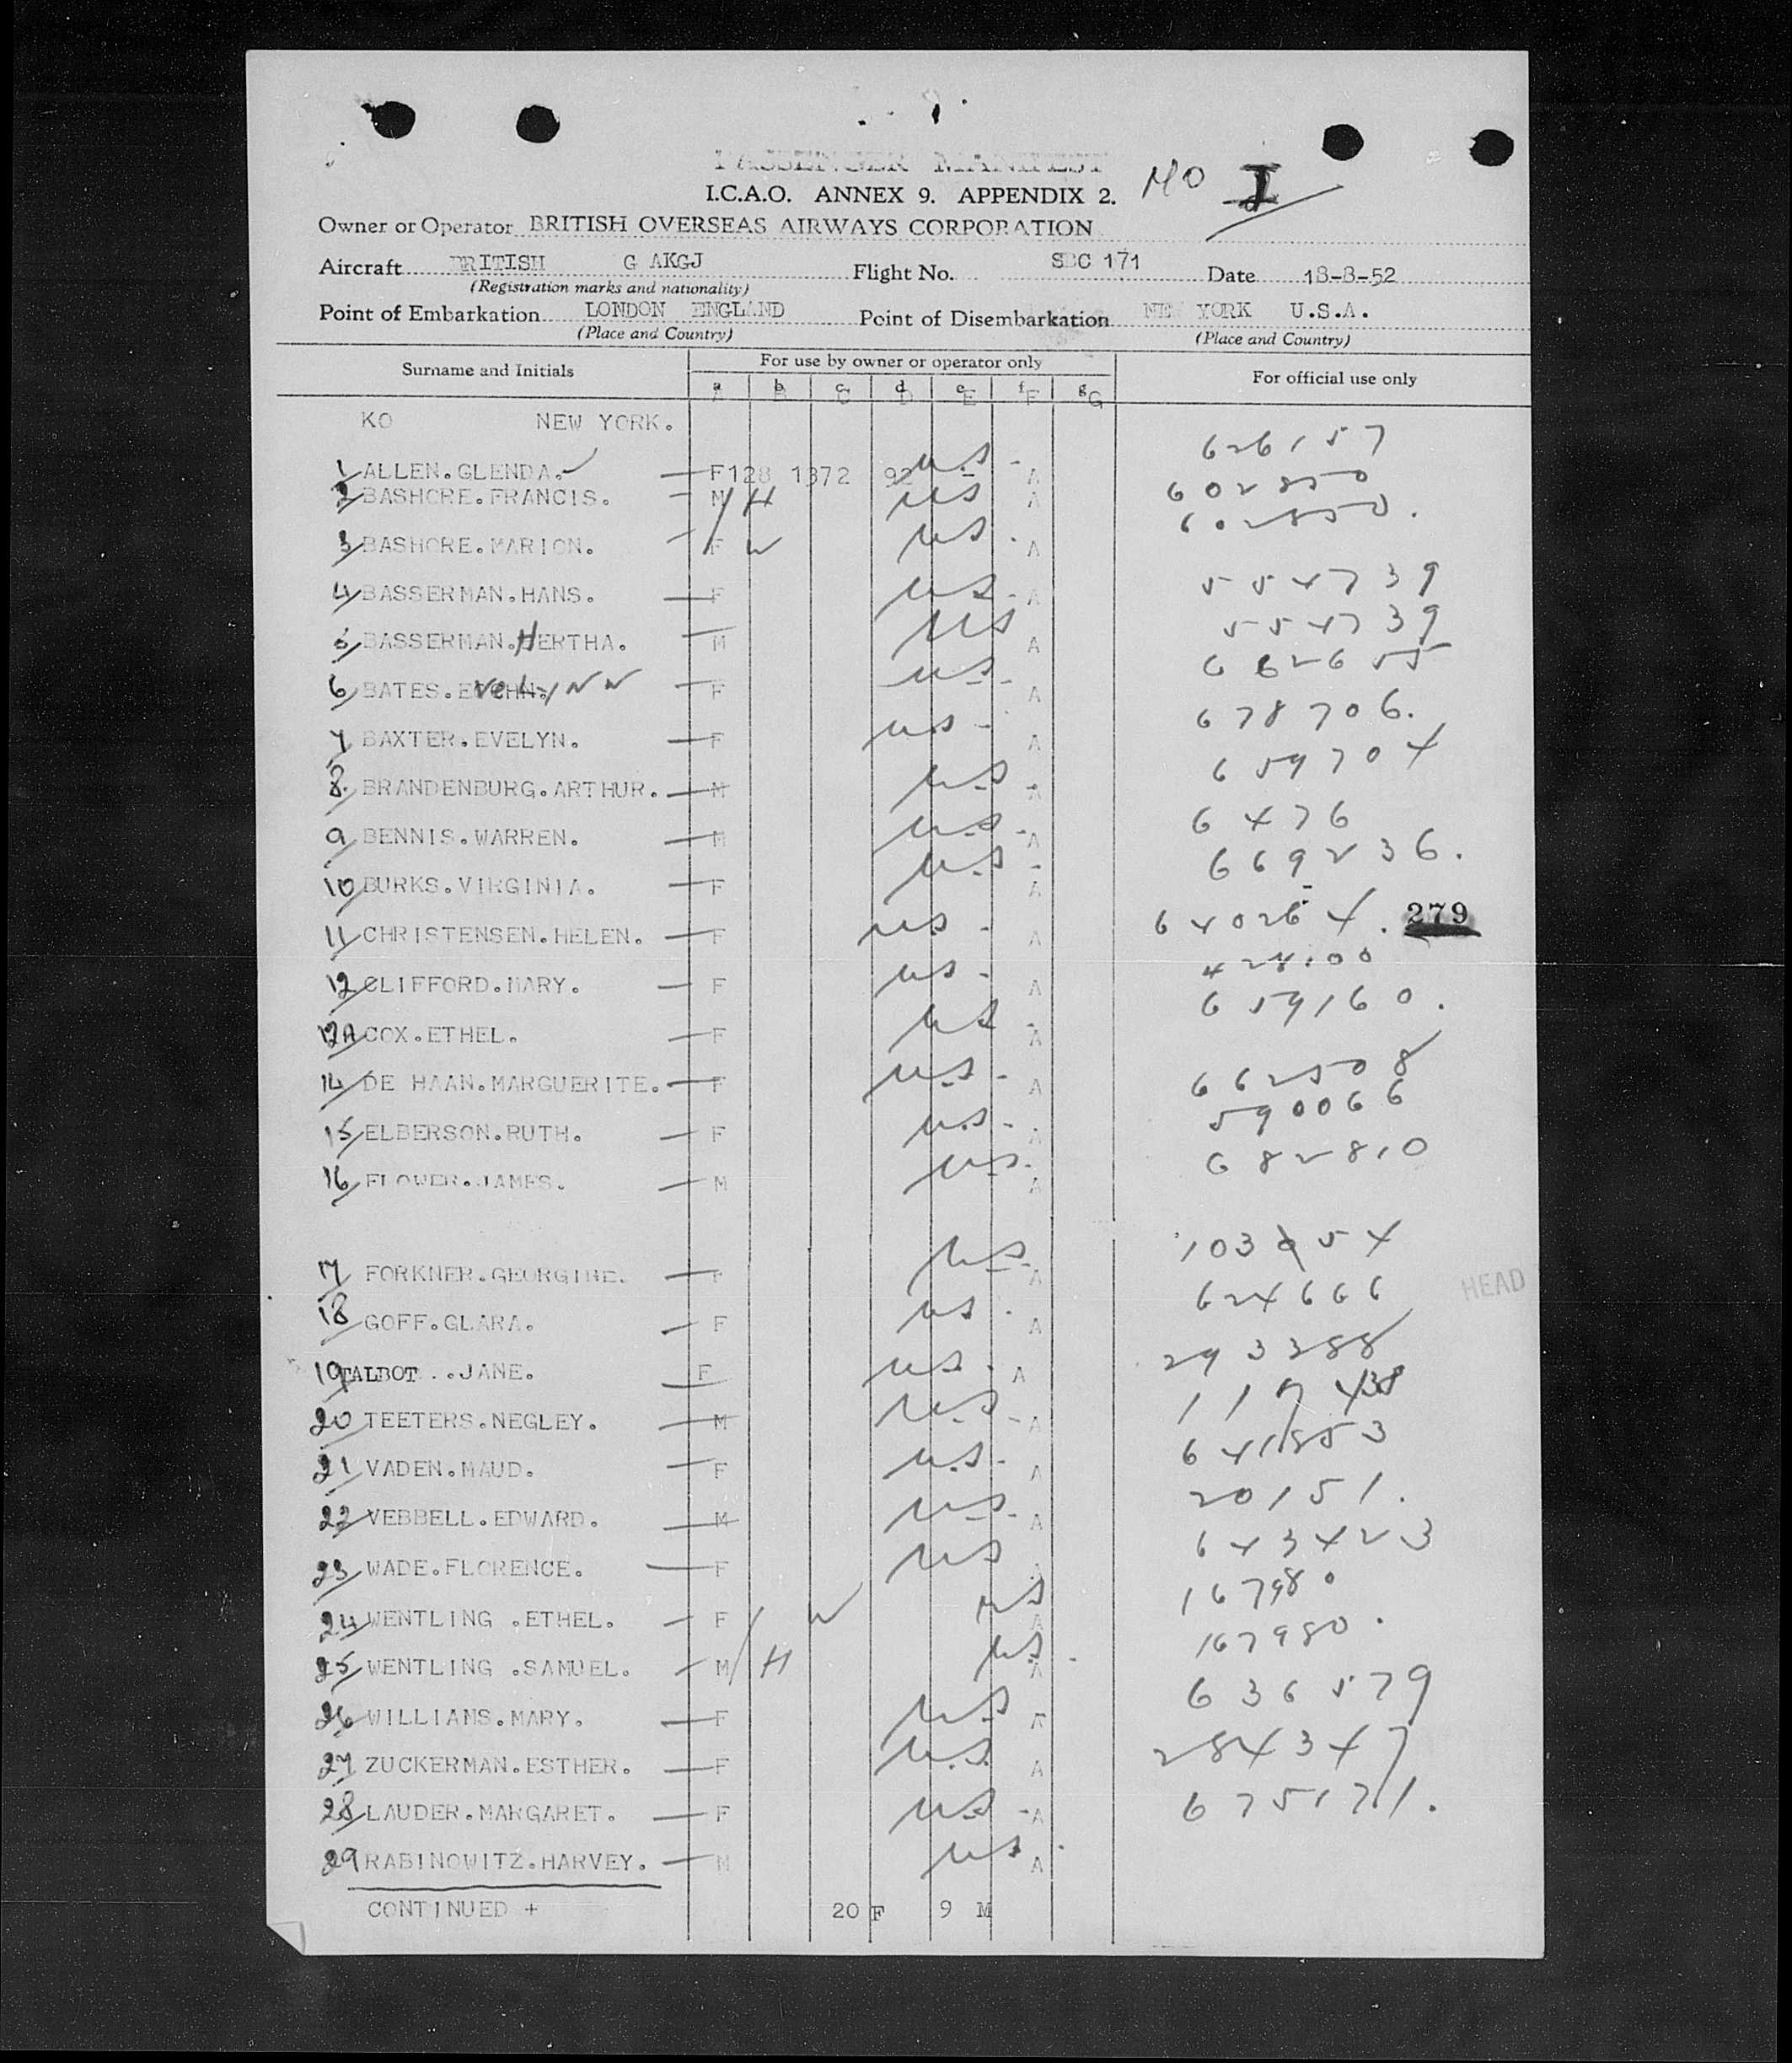 PASSENGER MANIFEST
I.C.A.O. ANNEX 9. APPENDIX 2.
Owner or Operator BRITISH OVERSEAS AIRWAYS CORPORATION
Aircraft BRITISH G AKGJ Flight No. SBC 171 Date 18-8-52
(Registration marks and nationality)
Point of Embarkation LONDON ENGLAND Point of Disembarkation NEW YORK U.S.A.
(Place and Country) (Place and Country)
Surname and Initials For use by owner or operator only For official use only
a b c d e f g
A B C D E F G
KO NEW YORK.
1/ ALLEN.GLENDA. F128 1372 92 US - A 626157
2/ BASHORE.FRANCIS. M H US A 602850
3/ BASHORE.MARION. F W US A 602850.
4/ BASSERMAN.HANS. F US A 554739
5/ BASSERMAN.HERTHA. M US A 554739
6/ BATES.EVELYNN F US A 662655
7/ BAXTER.EVELYN. F US - A 678706.
8/ BRANDENBURG.ARTHUR. M US - A 659704
9/ BENNIS.WARREN. M US - A 6476
10/ BURKS.VIRGINIA. F US - A 669236.
11/ CHRISTENSEN.HELEN. F US - A 640264. 279
12/ CLIFFORD.MARY. F US - A 428100
12A COX.ETHEL. F US - A 659160.
14/ DE HAAN.MARGUERITE. F US - A 662508
15/ ELBERSON.RUTH. F US - A 590066
16/ FLOWER.JAMES. M US - A 682810
17/ FORKNER.GEORGINE. F US - A
18/ GOFF.GLARA. F US - A 624666
HEAD
19 TALBOT ..JANE. F US - A 293288
20/ TEETERS.NEGLEY. M US - A
21/ VADEN.MAUD. F US - A 641853
22/ VEBBELL.EDWARD. M US - A 20151.
23/ WADE.FLORENCE. F US 643423
24/ WENTLING .ETHEL. F W US A 167980
25/ WENTLING .SAMUEL. M H US - A 167980.
26/ WILLIAMS.MARY. F US A 636579
27/ ZUCKERMAN.ESTHER. F US A 284347
28/ LAUDER.MARGARET. F US - A 675171.
29 RABINOWITZ.HARVEY. M US - A
CONTINUED + 20 F 9 M